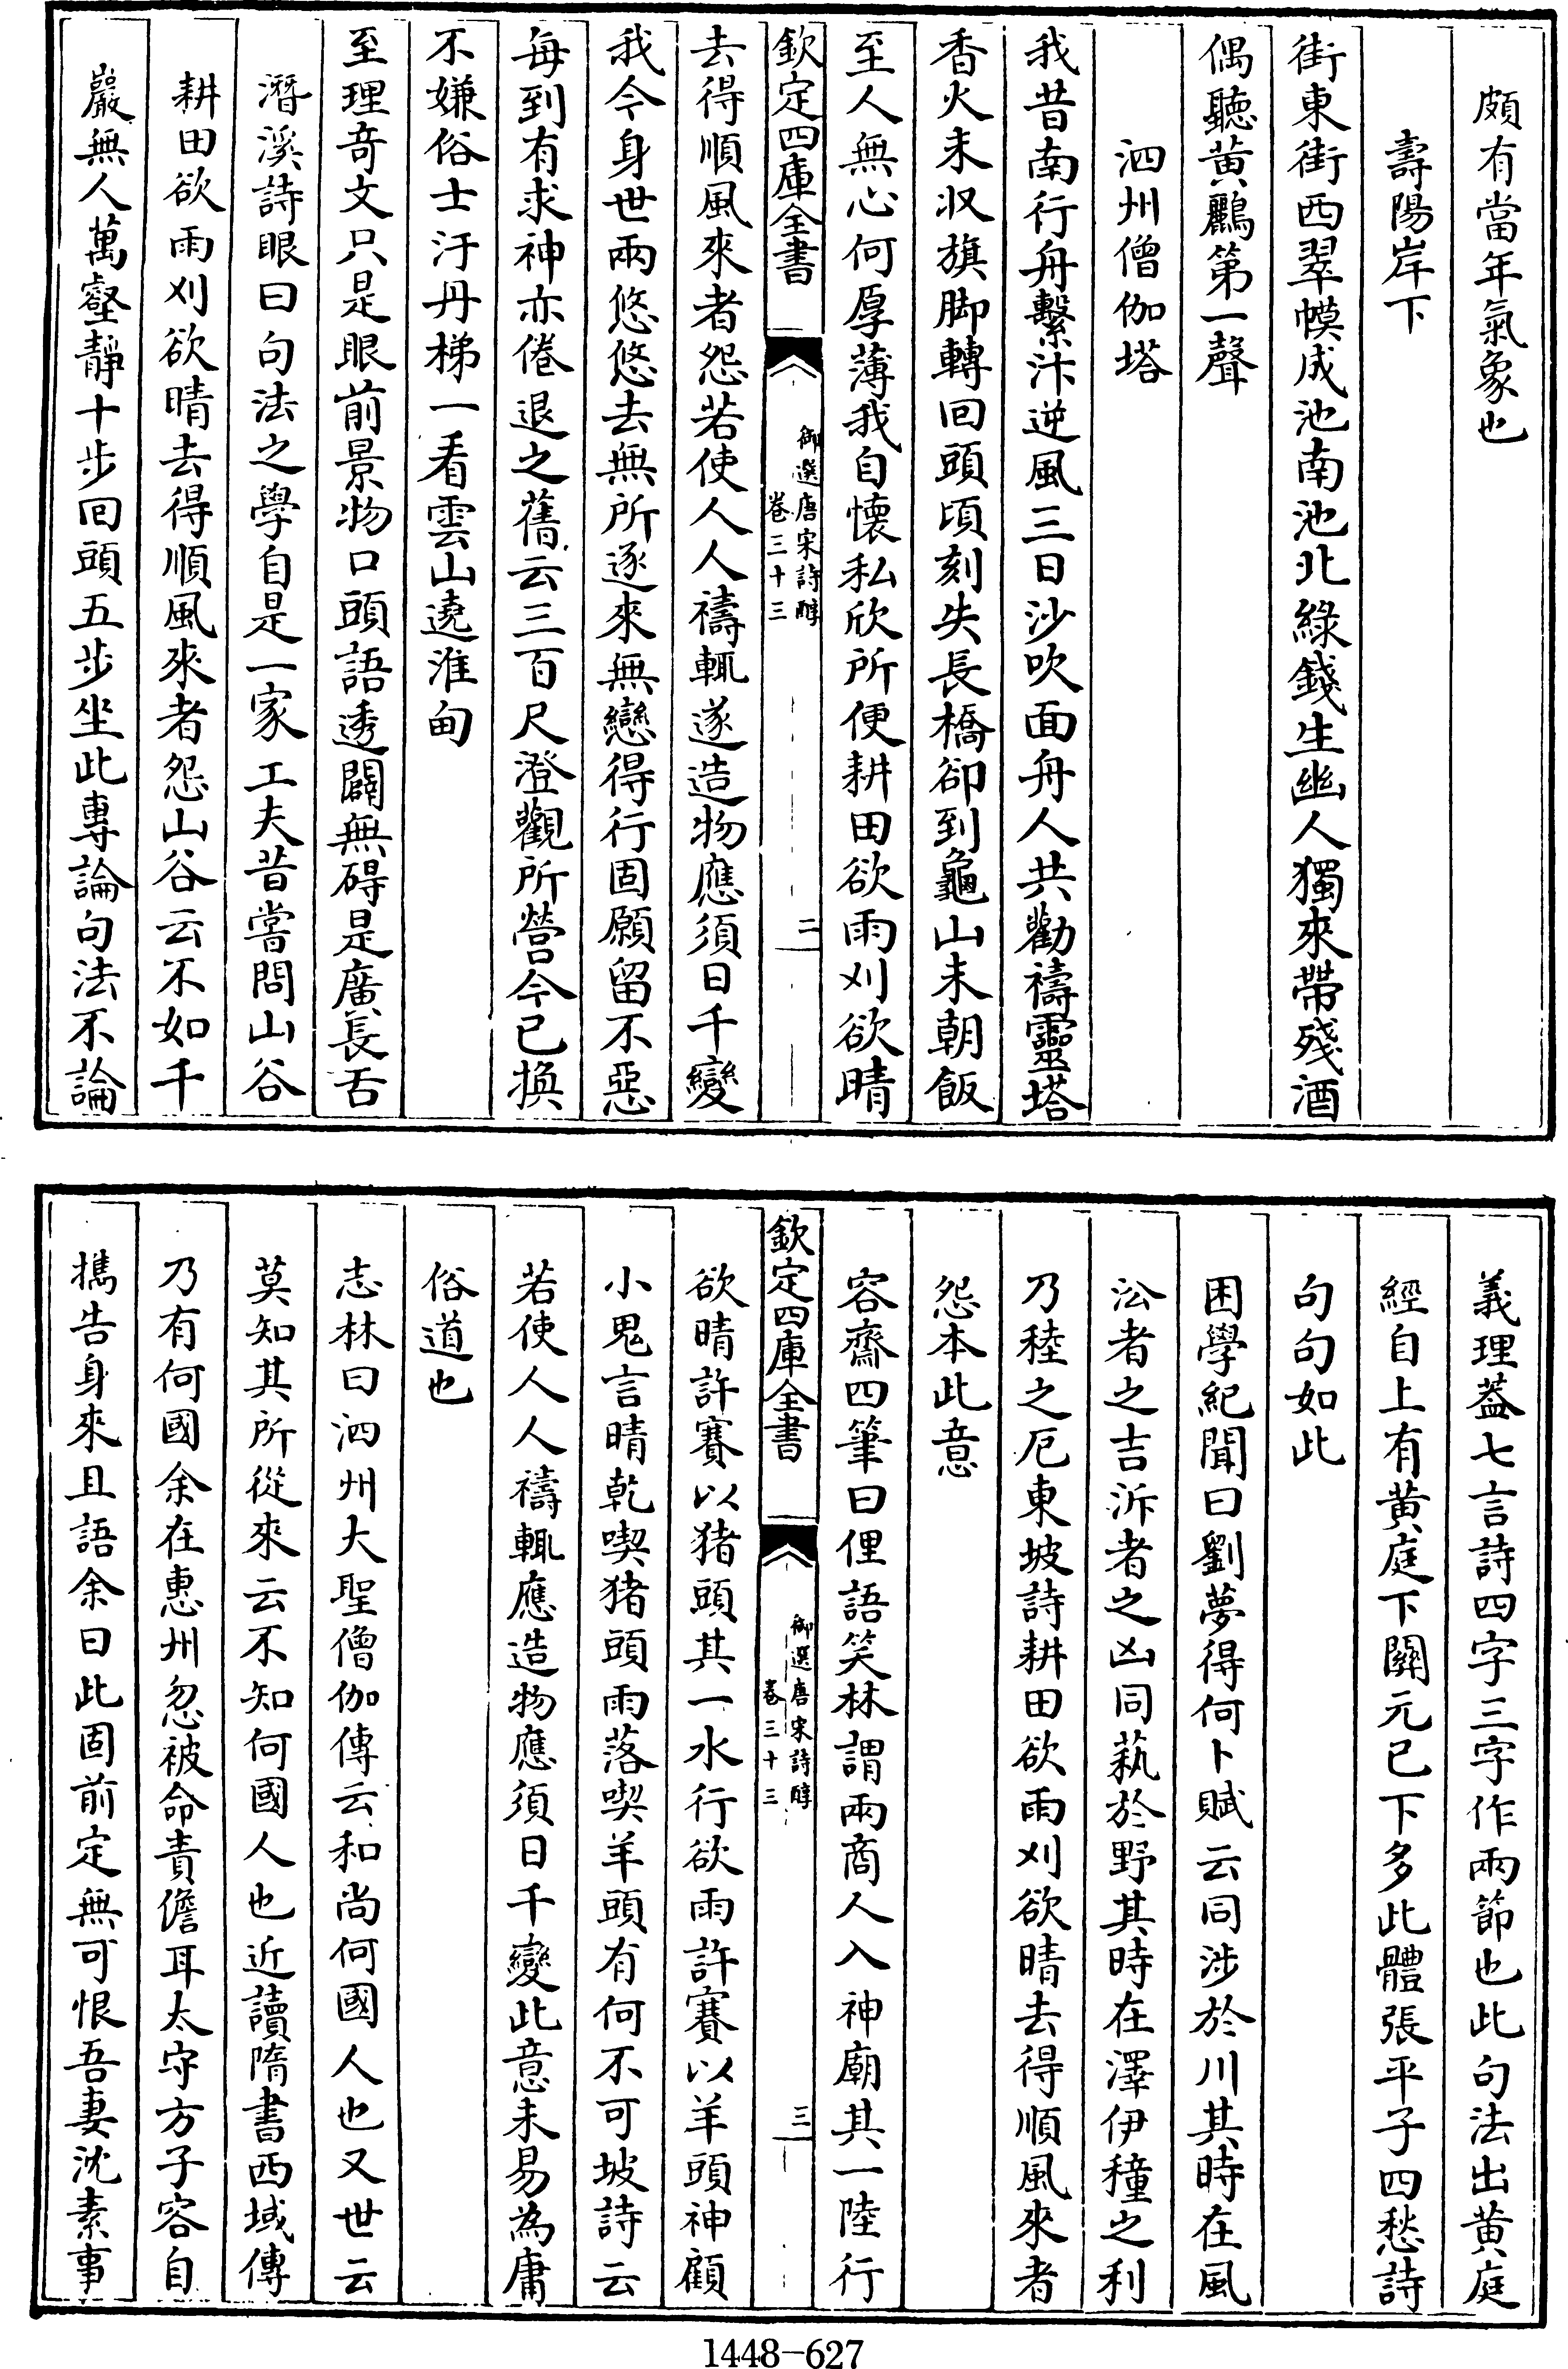 頗有當年氣象也
壽陽岸下
街東街西翠幙成池南池北綠錢生幽人獨來帶殘酒
偶聽黄鸝第一聲
泗州僧伽塔
我昔南行舟繫汴逆風三日沙吹面舟人共勸禱靈塔
香火未収旗脚轉回頭頃刻失長橋卻到龜山未朝飯
至人無心何厚薄我自懷私欣所便耕田欲雨刈欲晴
欽定四庫全書
御選唐宋詩醇
卷三十三
二
去得順風來者怨若使人人禱輒遂造物應須日千變
我今身世兩悠悠去無所逐來無戀得行固願留不惡
每到有求神亦倦退之舊云三百尺澄觀所營今已換
不嫌俗士汙丹梯一看雲山遶淮甸
至理奇文只是眼前景物口頭語透闢無碍是廣長舌
潛溪詩眼曰句法之學自是一家工夫昔嘗問山谷
耕田欲雨刈欲晴去得順風來者怨山谷云不如千
巖無人萬壑靜十步回頭五步坐此專論句法不論
義理葢七言詩四字三字作兩節也此句法出黄庭
經自上有黄庭下關元已下多此體張平子四愁詩
句句如此
困學紀聞曰劉夢得何卜賦云同涉於川其時在風
㳂者之吉泝者之凶同蓺於野其時在澤伊穜之利
乃稑之厄東坡詩耕田欲雨刈欲晴去得順風來者
怨本此意
容齋四筆曰俚語笑林謂兩商人入神廟其一陸行
欽定四庫全書
御選唐宋詩醇
卷三十三
三
欲晴許賽以猪頭其一水行欲雨許賽以羊頭神顧
小鬼言晴乾喫猪頭雨落喫羊頭有何不可坡詩云
若使人人禱輒應造物應須日千變此意未易為庸
俗道也
志林曰泗州大聖僧伽傳云和尚何國人也又世云
莫知其所從來云不知何國人也近讀隋書西域傳
乃有何國余在惠州忽被命責儋耳太守方子容自
擕告身來且語余曰此固前定無可恨吾妻沈素事
1448-627